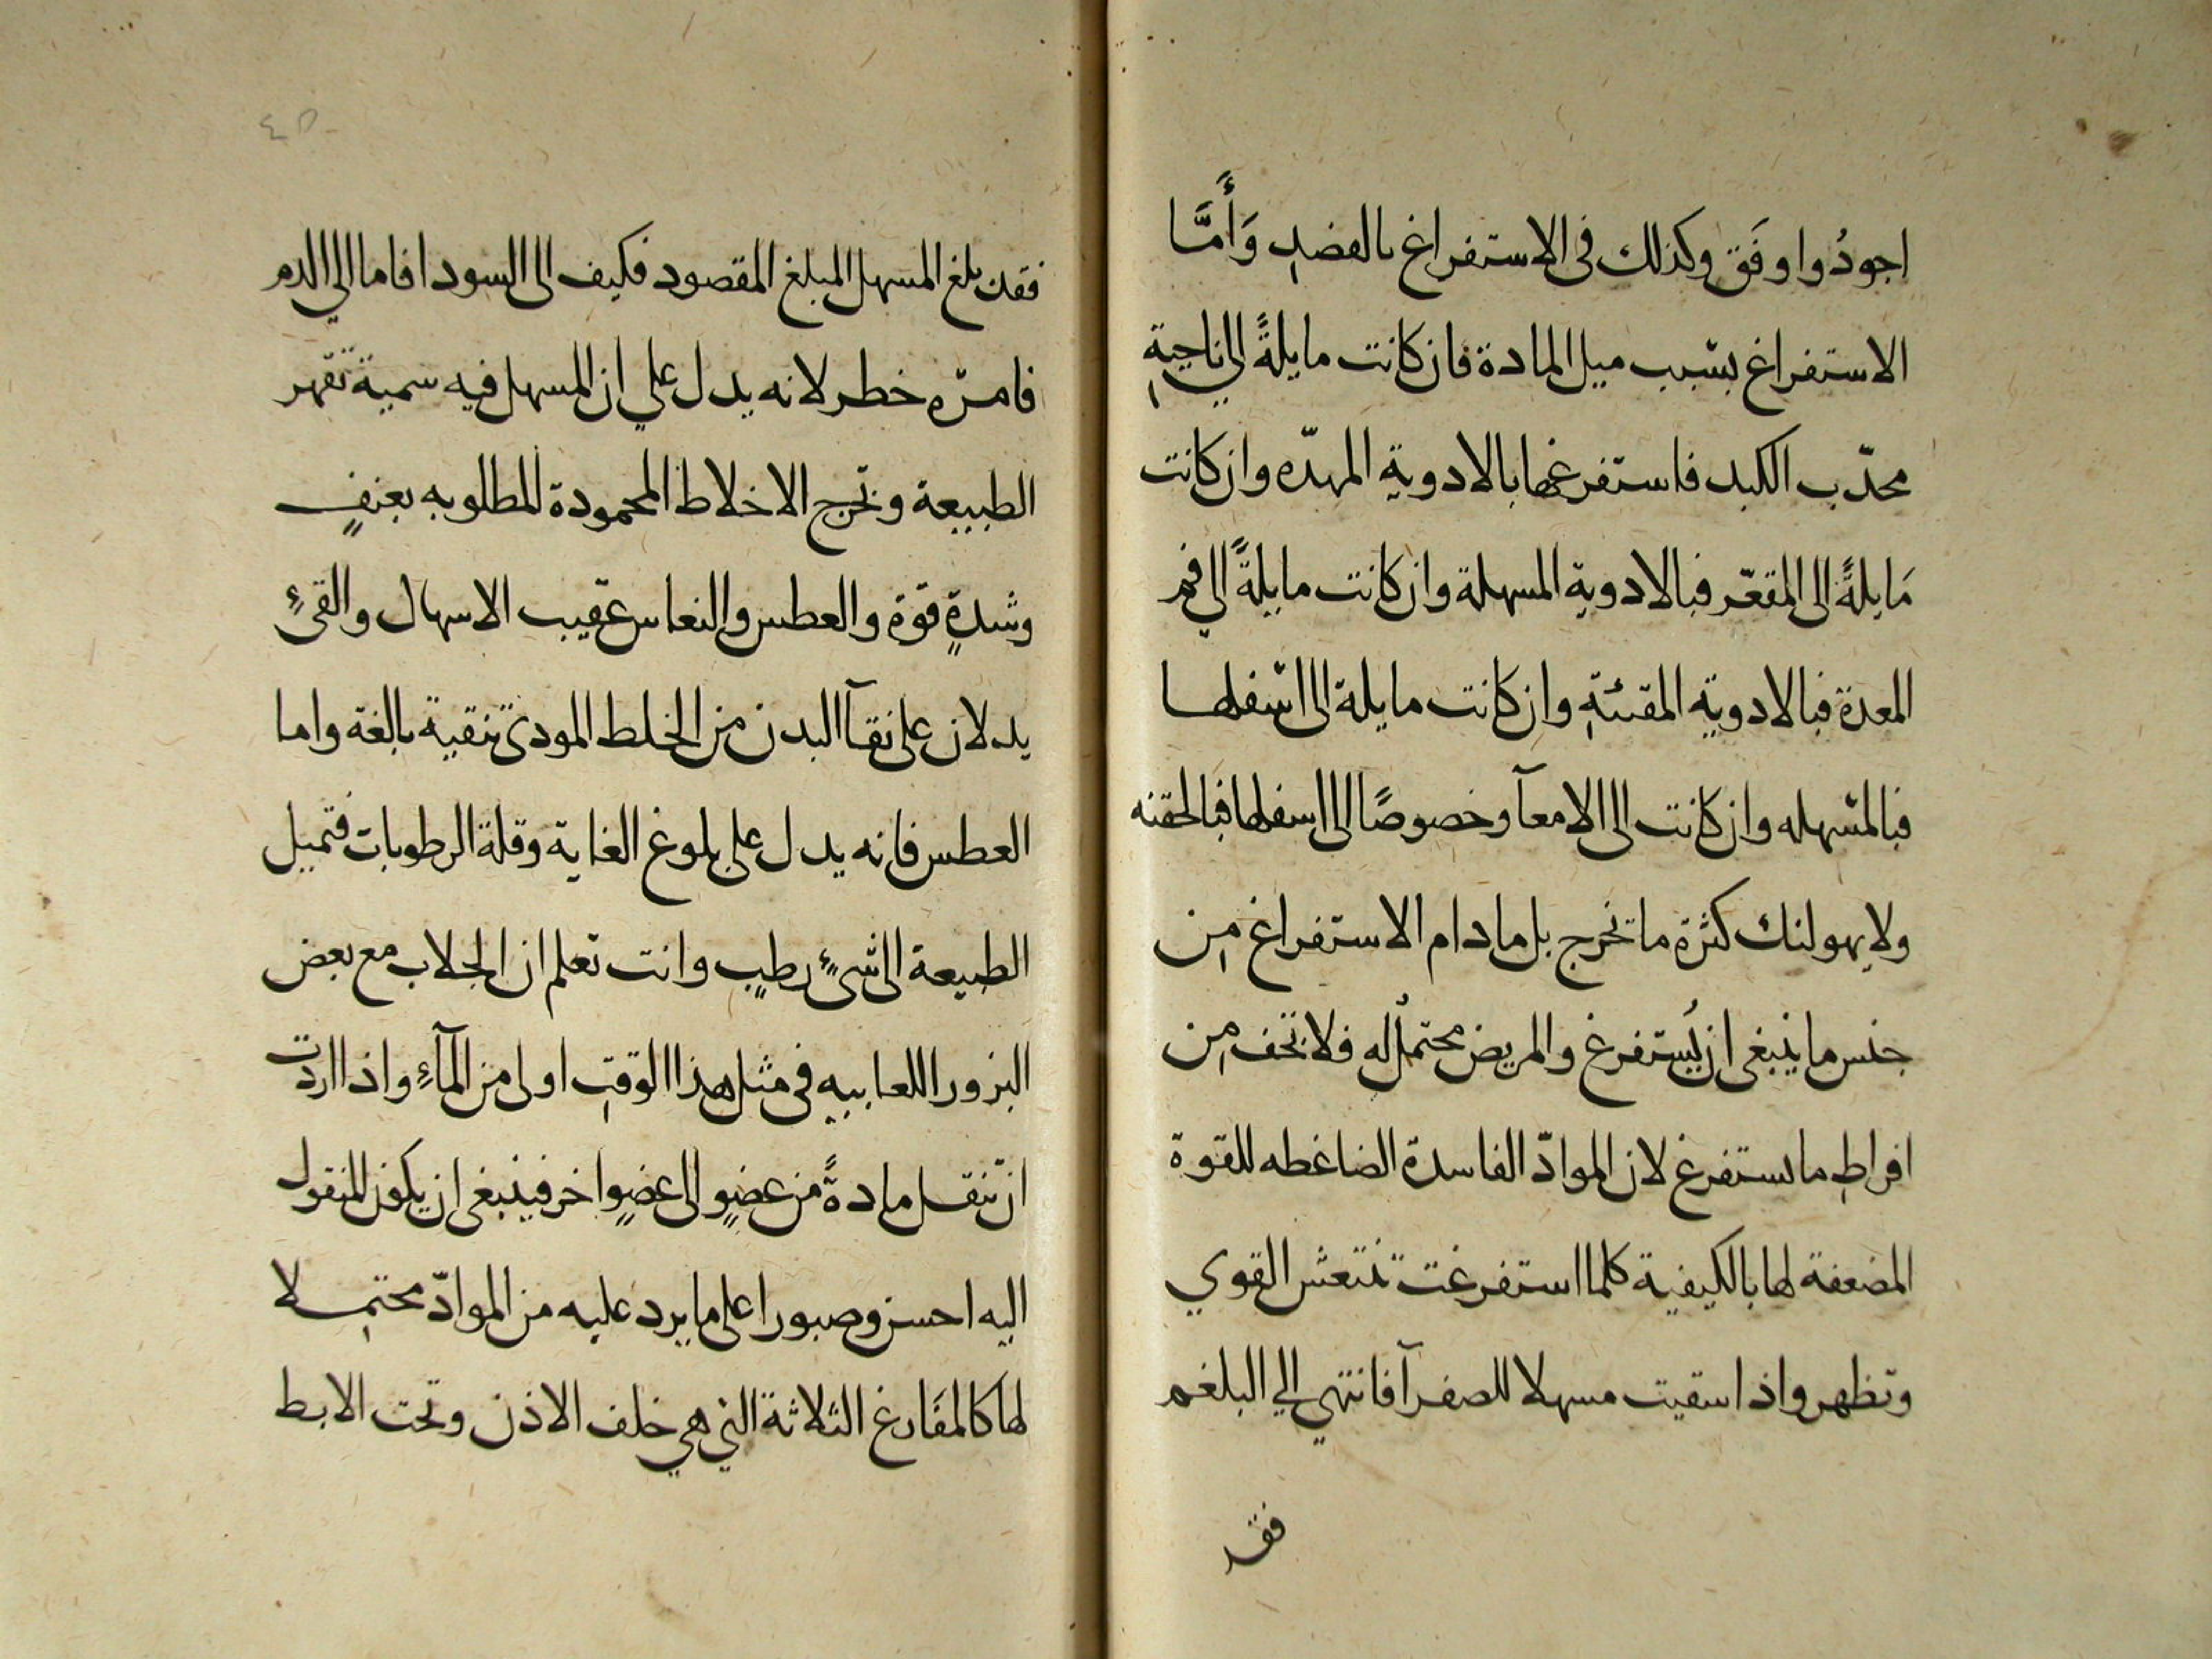 اجودُ واوفَق وكذلك فى الاستفراغ بالفصدِ وَأَمَّا
الاستفراغ بسَبب ميل المادة فان كانت مايلةً الي ناحيةِ
محدّب الكبد فاستفرغها بالادوية المدرّه وان كانت
مَايلةً الى المقعّر فبالادوية المسهلة وان كانت مايلةً الي فم
المعدة فبالادوية المقيئةِ وان كانت مايلة الى اسْفلها
فبالمسْهله وان كانت الى الامعآ وخصوصًا الى اسفلها فبالحقنه
ولا يهولنك كثرة ما تخرج بل مادام الاستفراغ مِن
جنس ما ينبغى ان يُستفرغ والمريض محتملُ له فلا تخف مِن
افراطِ ما يستفرغ لان الموادّ الفاسدة الضاغطه للقوة
المضعفة لها بالكيفية كلما استفرغت تنتعش القوي
وتظهر واذا سقيت مسهلا للصفرآ فانتهي الي البلغم
فقد
٤٥
فقد بلغ المسهل المبلغ المقصود فكيف الى السودا فاما الي الدم
فامرّه خطر لانه يدل علي ان المسهل فيه سمية تقهر
الطبيعة وتخرج الاخلاط المحمودة المطلوبه بعنفٍ
وشدةٍ قوة والعطس والنعاس عقيب الاسهال والقئٍ
يدلان على نقآ البدن من الخلط المودى تنقية بالغة واما
العطس فانه يدل على بلوغ الغاية وقلة الرطوبات فتميل
الطبيعة الى شئٍ رطبٍ وانت تعلم ان الجلاب مع بعض
البزور اللعابيه فى مثل هذا الوقتِ اولى من المآءِ واذا اردت
انْ تنقل مادةً من عضوٍ الى عضوٍ اخر فينبغى ان يكون المنقول
اليه احسن وصبورا على ما يرد عليه من الموادّ محتمِلا
لها كالمفَارغ الثلاثة التي هي خلف الاذن وتحت الابط